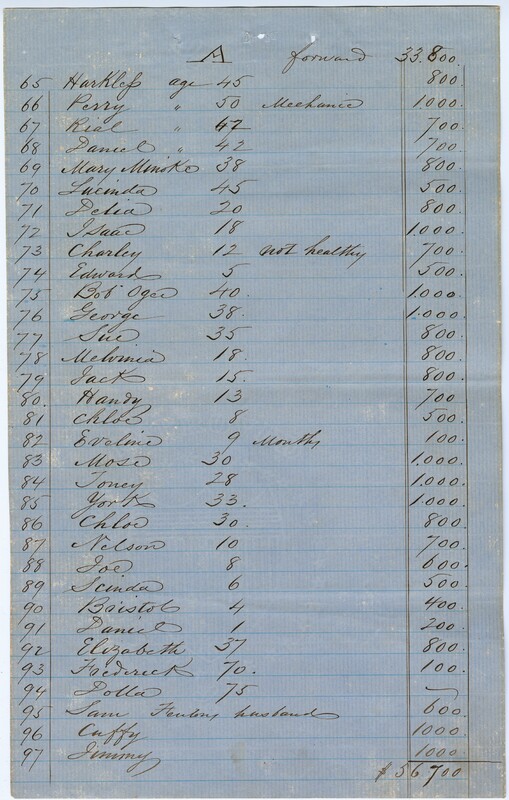 A forward 33.800.
65 Harkless age 45 800.
66 Perry " 50 Mechanic 1.000.
67 Rial " 47 700.
68 Daniel " 42 700.
69 Mary Minoke 38 800.
70 Lucinda 45 500.
71 Delia 20 800.
72 Isaac 18 1.000.
73 Charley 12 not healthy 700.
74 Edward 5 500.
75 Bob Ogee 40. 1.000.
76 George 38. 1.000.
77 Sue 35 800.
78 Melvinia 18. 800.
79 Jack 15. 800.
80. Handy 13 700
81 Chloe 8 500.
82 Eveline 9 Months 100.
83 Mose 30 1.000.
84 Toney 28 1.000.
85 York 33. 1.000.
86 Chloe 30. 800.
87 Nelson 10 700.
88 Joe 8 600.
89 Scinda 6 500.
90 Bristol 4 400.
91 Daniel 1 200.
92 Elizabeth 37 800.
93 Frederick 70. 100.
94 Dolla 75 —
95 Sam husband 600.
96 Cuffy 1000.
97 Jimmy 1000.
$ 56700